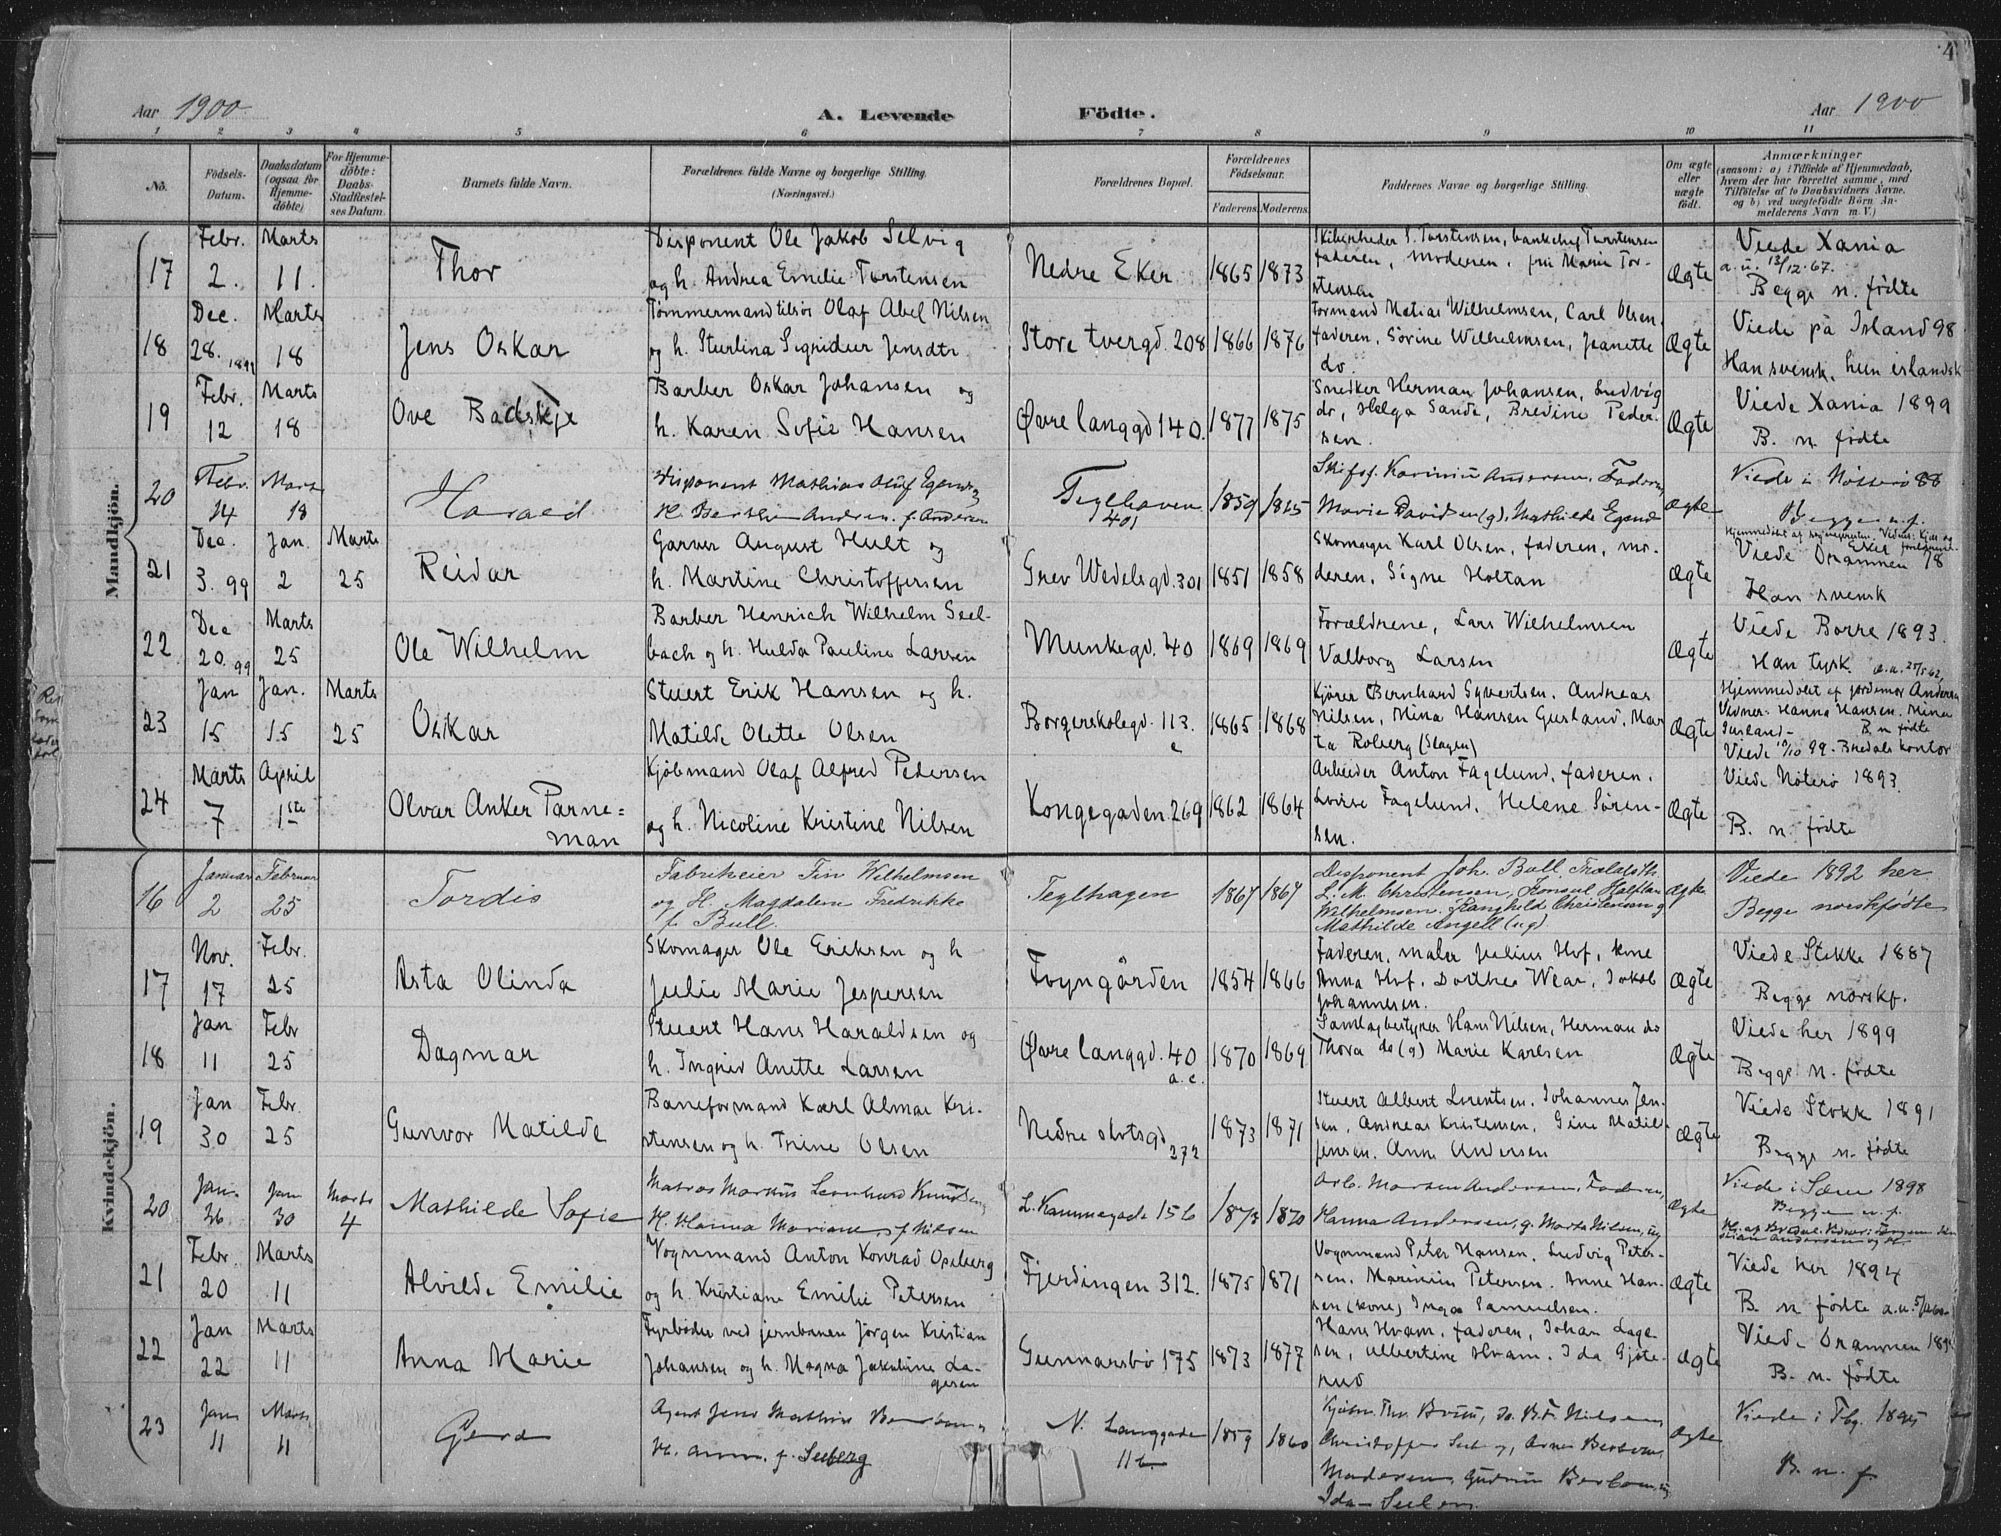 4
Aar 1900.
A. Levende
Födte.
Aar 1900
1 2 3 4 5 6 7 8 9 10 11
No.
Födsels-Datum.
Daabsdatum (ogsaa for Hjemme-döbte)
For Hjemme-döbte: Daabs-Stadfæstel-ses Datum.
Barnets fulde Navn.
Forældrenes fulde Navne og borgerlige Stilling. (Næringsvei.)
Forældrenes Bopæl.
Forældrenes Födselsaar.
Faderens. Moderens.
Faddernes Navne og borgerlige Stilling.
Om ægte eller uægte födt.
Anmærkninger
(saasom: a) i Tilfælde af Hjemmedaab,
hvem der har forrettet samme, med
Tilföielse af to Daabsvidners Navne.
og b) ved uægtefödte Börn An-
melderens Navn m. V.)
Mandkjön.
17 Febr. 2. Marts 11. Thor
Disponent Ole Jakob Selvig
og h. Andrea Emelie Torstensen
Nedre Eker 1865 1873
Skibsreder S. Torstensen, bankchef Torstensen
faderen, moderen, fru Marie Tor-
stensen
Ægte
Viede Xania
a.u. 13/12.67.
Begge n. födte
18 Dec. 28. 1899 Marts 18 Jens Oskar
Tömmermand tilsös Olaf Abel Nilsen
og h. Sturlina Sigridur Jensdtr
Store tvergd. 208 1866 1876
Formand Matias Wilhelmsen, Carl Olsen,
faderen, Sörine Wilhelmsen, Jeanette
do.
Ægte
Viede på Island 98
Han svensk, hun islandsk
19 Febr. 12 Marts 18 Ove Badskje
Barber Oskar Johansen og
h. Karen Sofie Hansen
Øvre langgd 140. 1877 1875
Snedker Herman Johansen, Ludvig
do, Helga Sande, Bredine Peder-
sen.
Ægte
Viede Xania 1899
B. n. födte
20 Febr. 14 Marts 18 Harald
Disponent Mathias Oluf
Teglhaven 401 1859 1865
Andersen, Faderen,
Marie Davidsen (g), Mathilde
Ægte
Viede i Nötterö 88
Begge n. f.
21 Dec. 3. 99 Jan. 2 Marts 25 Reidar
Garver August Hult og
h. Martine Christoffersen
Grev Wedelsgd. 301 1851 1858
Skomager Karl Olsen, faderen, mo-
deren, Signe Holtan
Ægte
Viede Drammen 78
Han svensk
22 Dec 20. 99 Marts 25 Ole Wilhelm
Barber Henrich Wilhelm Seel-
bach og h. Hulda Pauline Larsen
Munkegd. 40 1869 1869
Forældrene, Lars Wilhelmsen
Valborg Larsen
Ægte
Viede Borre 1893.
Han tysk.
23 Jan 15 Jan. 15 Marts 25 Oskar
Stuert Erik Hansen og h.
Matilde Olette Olsen
Borgerskolegd. 113. c 1865 1868
Kjörer Bernhard Syvertsen, Andreas
Nilsen, Mina Hansen Gusland, Mar
ta Roberg (Slagen)
Ægte
Hjemmedöbt af jordemor Andersen
Vidner: Hanna Hansen. Mina
Gusland - B. n födte
Viede 10/10 99. Bredals kontor
24 Marts 7 April 1ste Olvar Anker Parne=
man
Kjöbmand Olaf Alfred Pedersen
og h. Nicoline Kristine Nilsen
Kongegaden 269 1862 1864
Arbeider Anton Fagelund, faderen.
Lovise Fagelund, Helene Sören-
sen.
Ægte
Viede Nöterö 1893.
B. n. födte
Kvindekjön.
16 Januar 2 Februar 25 Tordis
Fabrikeier Finn Wilhelmsen
og H. Magdalene Fredrikke
f. Bull.
Teglhagen 1867 1867
Disponent Joh. Bull,
L. M. Christensen, Konsul Halfdan
Wilhelmsen. Ranghild Christensen g
Mathilde Angell (ug)
Ægte
Viede 1892 her
Begge norskfödte
17 Nov. 17 Febr. 25 Asta Olinda
Skomager Ole Eriksen og h
Julie Marie Jespersen
Foyngården 1854 1866
Faderen, maler Julius Hof, kone
Anna Hof, Dorthea Wear, Jakob
Johannesen.
Ægte
Viede Stokke 1887
Begge norskf.
18 Jan 11 Febr 25 Dagmar
Stuert Hans Haraldsen og
h. Ingrid Anette Larsen
Øvre langgd. 40 a.c. 1870 1869
Samlagbestyrer Hans Nilsen, Herman do
Thora do (g) Marie Karlsen
Ægte
Viede her 1899
Begge n. födte
19 Jan 30 Febr 25 Gunvor Matilde
Baneformand Karl Almar Kri-
stensen og h. Trine Olsen
Nedre slotsgd 272 1873 1871
Stuert Albert Lorentsen. Johannes Jen-
sen, Andreas Kristensen, Gine Matil-
Jensen. Anna Andersen
Ægte
Viede Stokk 1891
Begge n. födte
20 Jan. 26 Jan 30 Marts 4 Mathilde Sofie
Matros Markus Leonhard Knudsen
H. Hanna Mariane f. Nilsen
L. Kammegade 156 1873 1870
Arb. Andersen, Faderen,
Hanna Andersen, g. Nilsen, ug
Ægte
Viede i Sæm 1898
Begge n. f.
21 Febr. 20 Marts 11 Alvilde Emilie
Vognmand Anton Konrad Oseberg
og h. Kristiane Emilie Petersen
Fjerdingen 312. 1875 1871
Vognmand Peter Hansen, Ludvig Peter-
sen, Marinius Petersen. Anne Han-
sen (kone) Inga Samuelsen.
Ægte
Viede her 1894
B. n födte
22 Jan 22 Marts 11 Anna Marie
Fyrböder ved jernbanen Jörgen Kristian
Johansen og h. Magna Jakobine La-
gesen
Gunnarsbö 175 1873 1877
Hans Hvam, faderen, Johan Lage
sen, Albertine Hvam. Ida Gjöte-
rud
Ægte
Viede Drammen
B. n. födte
23 Jan 11 Marts 11 Gerd
Agent Jens Mathias
H. Anna f. Seeberg
N. Langgade 116 1859 1860
Nilsen
Christoffer
Moderen, Gudrun
Ida
Ægte
Viede i Tbg. 1895
B. n. f